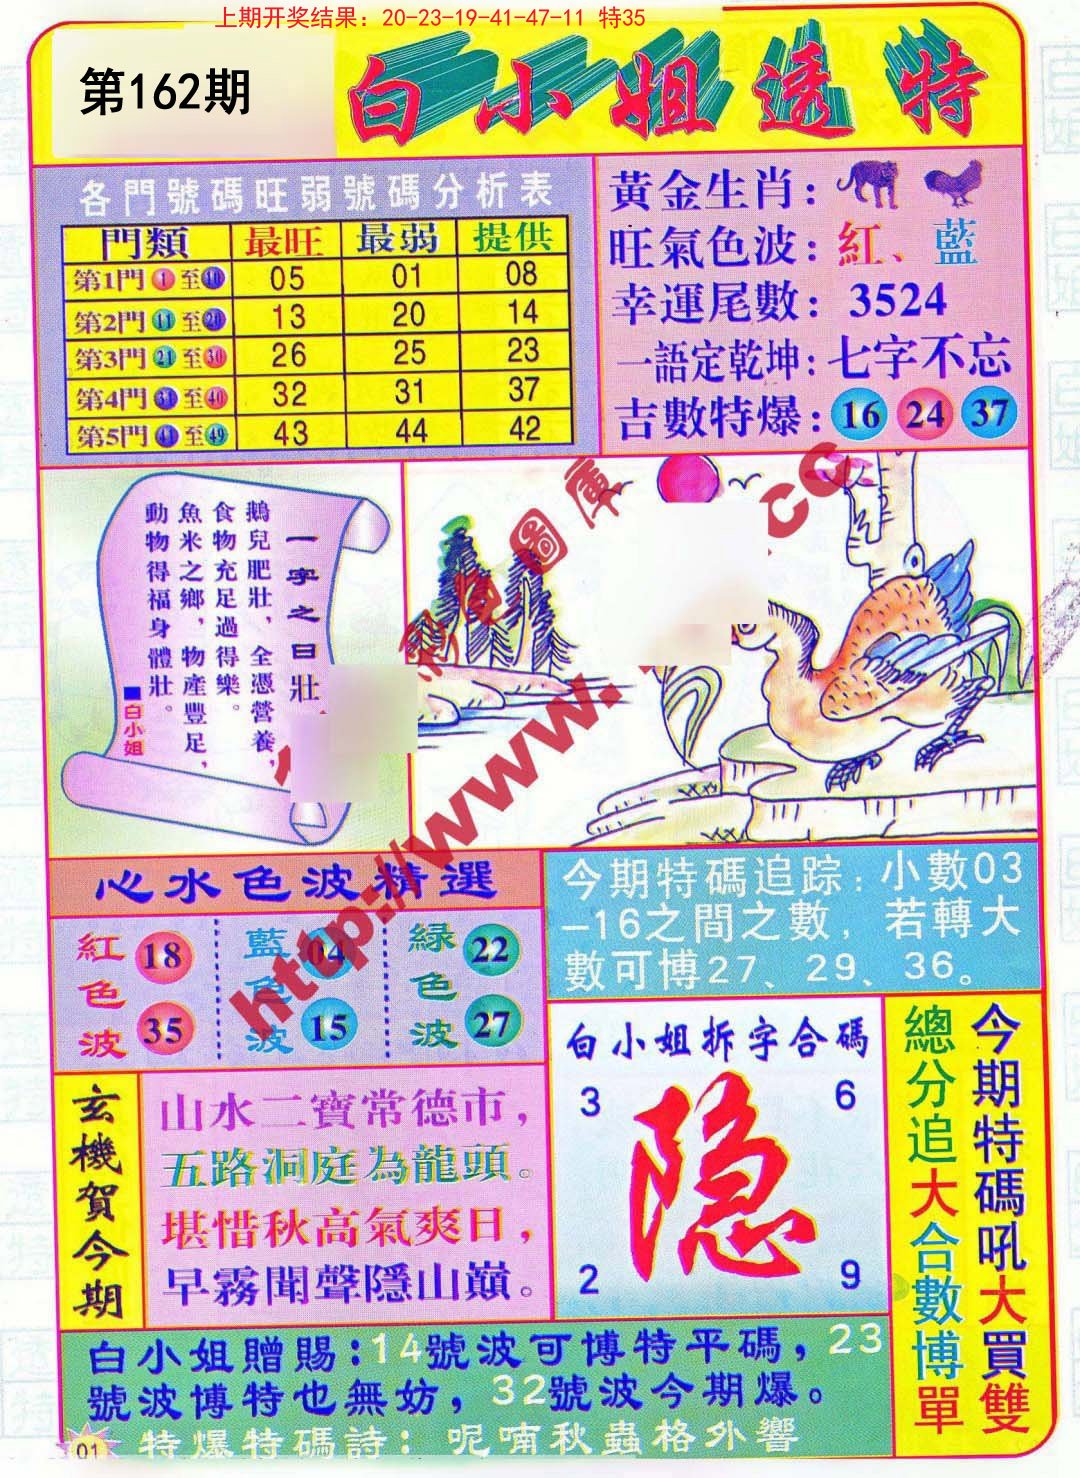 上期开奖结果：20-23-19-41-47-11 特35
第162期
白小姐透特
各門號碼旺弱號碼分析表
門類 最旺 最弱 提供
第1門 1 至 10 05 01 08
第2門 11 至 20 13 20 14
第3門 21 至 30 26 25 23
第4門 31 至 40 32 31 37
第5門 41 至 49 43 44 42
黃金生肖：
旺氣色波：紅、藍
幸運尾數：3524
一語定乾坤：七字不忘
吉數特爆：16 24 37
一字之曰壯
鵝兒肥壯，全憑營養，
食物充足過得樂。
魚米之鄉，物產豐足，
動物得福身體壯。
■白小姐
圖庫
http://www.
心水色波精選
紅色波 18 35
藍色波 04 15
綠色波 22 27
今期特碼追踪：小數03
—16之間之數，若轉大
數可博27、29、36。
玄機賀今期
山水二寶常德市，
五路洞庭為龍頭。
堪惜秋高氣爽日，
早霧聞聲隱山巔。
白小姐拆字合碼
3 6
隐
2 9
今期特碼吼大買雙
總分追大合數博單
白小姐贈賜：14號波可博特平碼，23
號波博特也無妨，32號波今期爆。
特爆特碼詩：呢喃秋蟲格外響
01